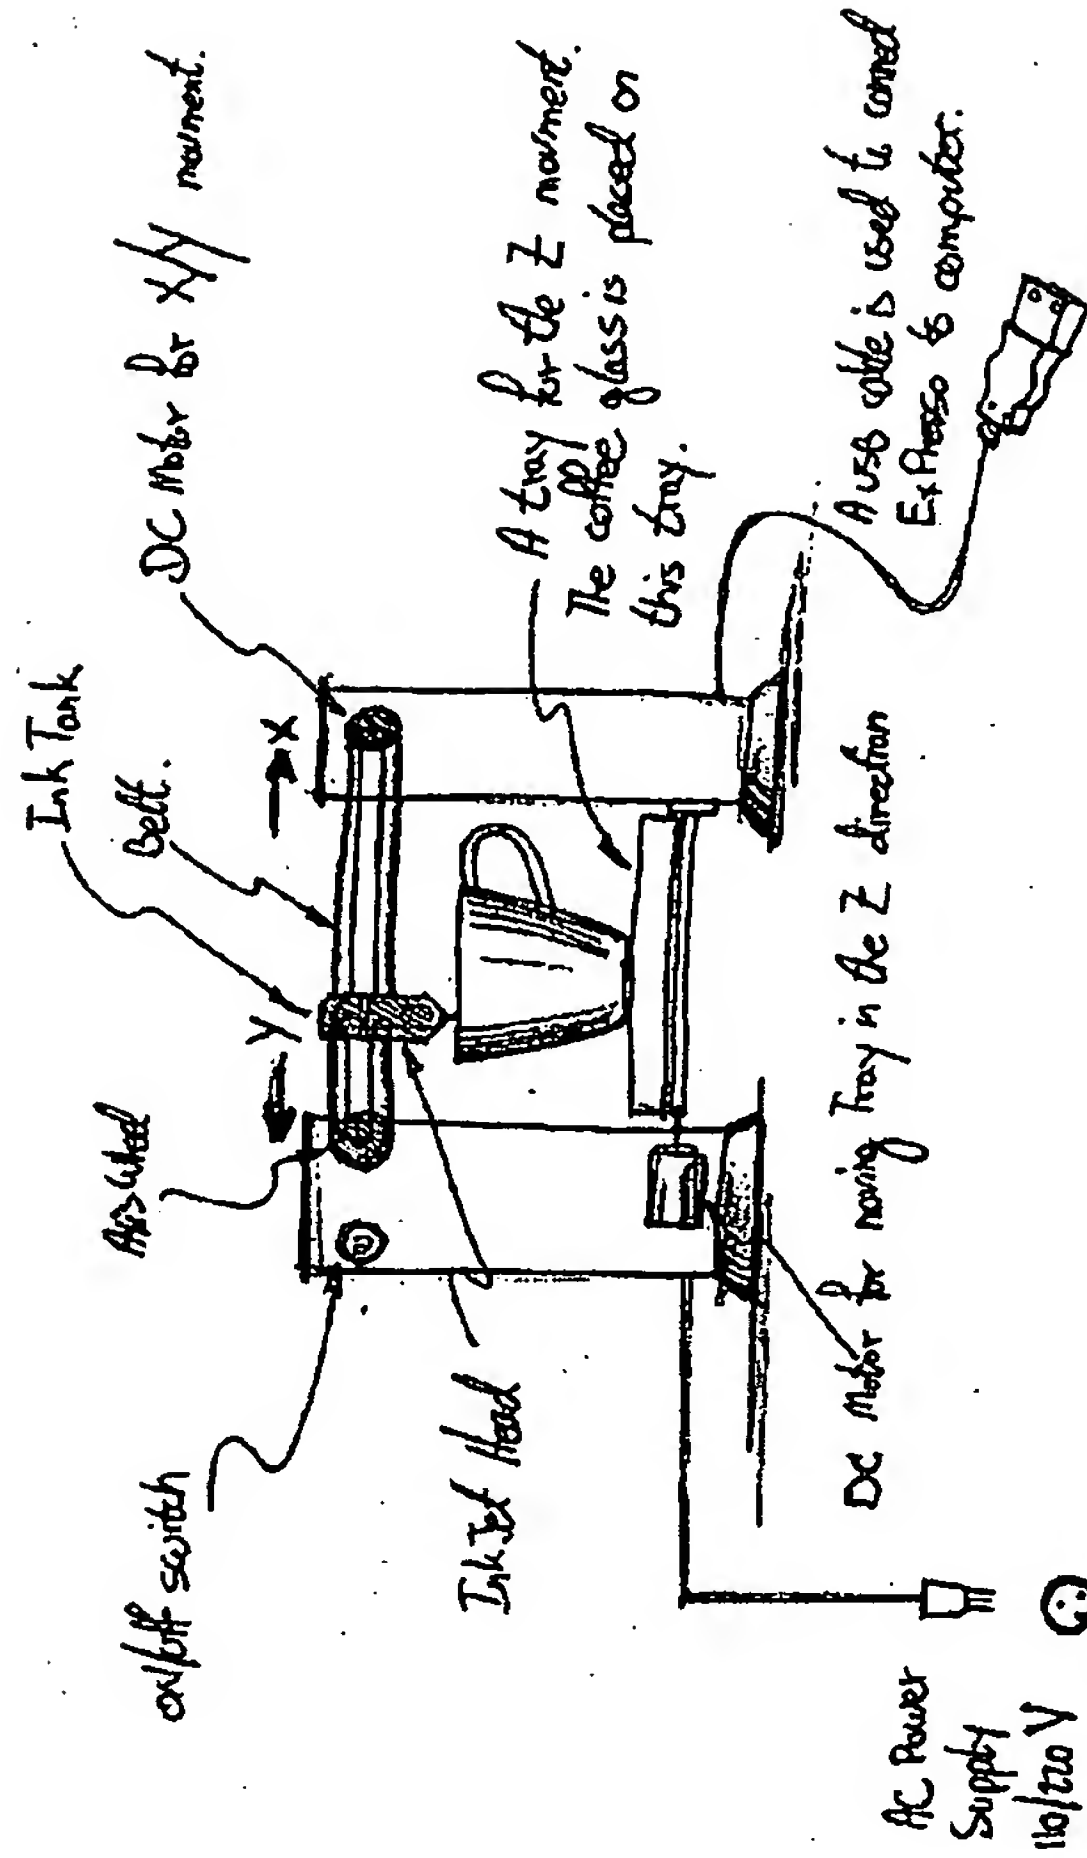 Ink Tank
Belt.
Axis wheel
Y
X
on/off switch
DC Motor for X/Y movment.
InkJet Head
A tray for the Z movment.
The coffee glass is placed on
this tray.
DC Motor for moving Tray in the Z direction
A USB cable is used to connect
to computer.
AC Power
Supply
110/220 V